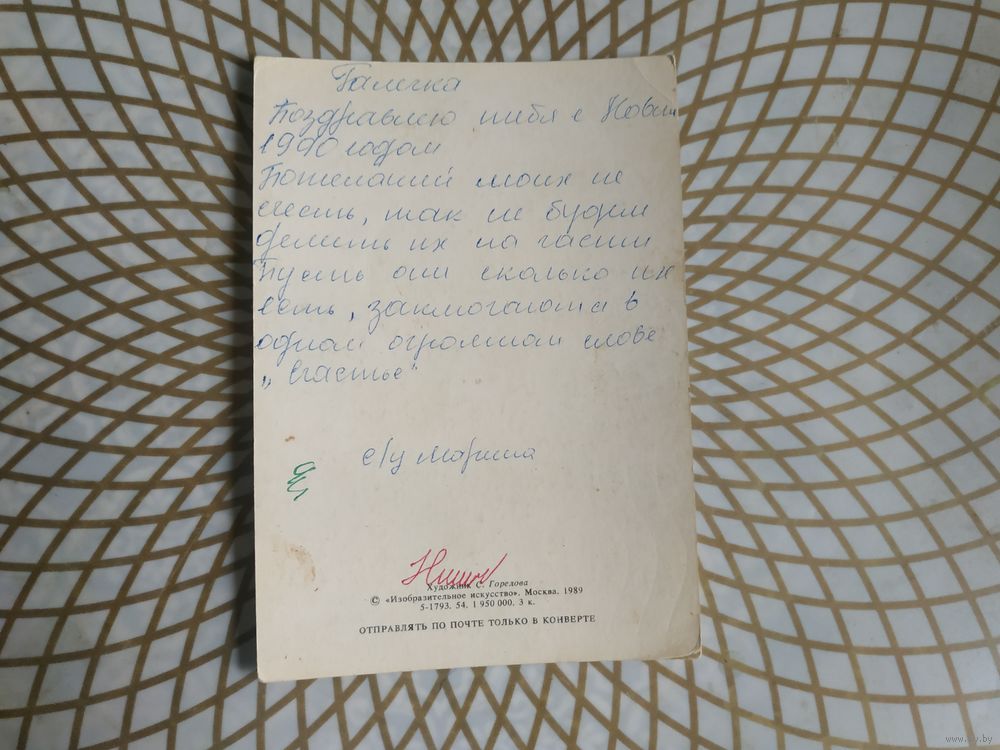 Галечка
Поздравляю тибя с Новым
1990 годом
Пожеланий моих не
счесть, так не будем
делить их на части
Пусть они сколько их
есть, заключаются в
одном огромном слове
„Счастье"
с/у Марина
Художник С. Горелова
© «Изобразительное искусство». Москва. 1989
5-1793. 54. 1 950 000. 3 к.
ОТПРАВЛЯТЬ ПО ПОЧТЕ ТОЛЬКО В КОНВЕРТЕ